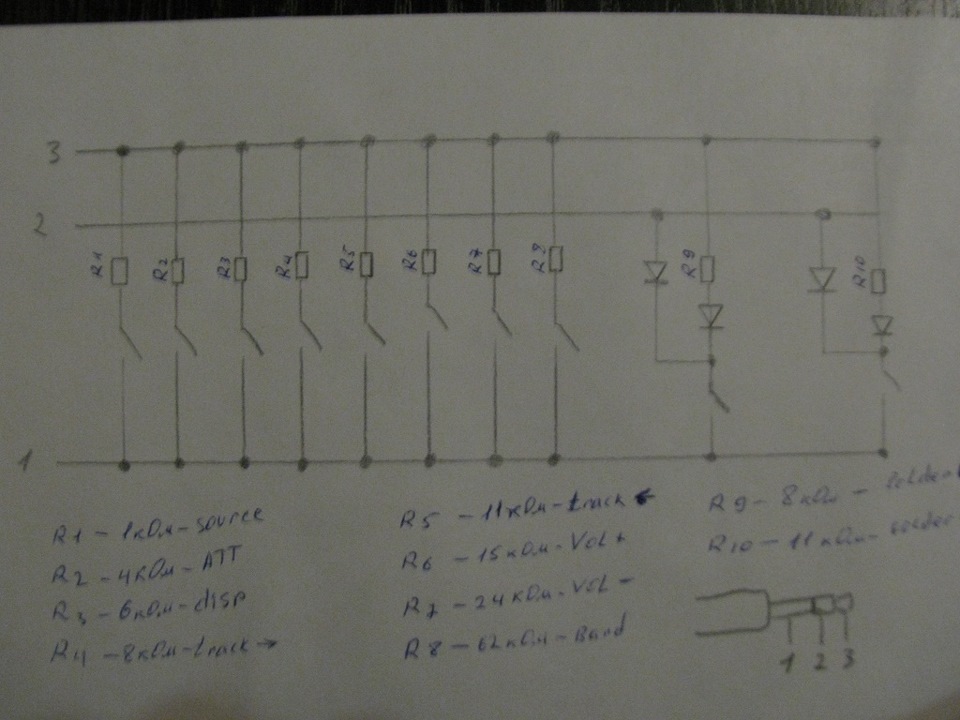 3
2
R1 R2 R3 R4 R5 R6 R7 R8 R9 R10
1
R1 – 1кОм – source
R2 – 4кОм – ATT
R3 – 6кОм – disp
R4 – 8кОм – track →
R5 – 11кОм – track ←
R6 – 15кОм – Vol +
R7 – 24кОм – Vol –
R8 – 62кОм – Band
R9 – 8кОм –
R10 – 11кОм –
1 2 3